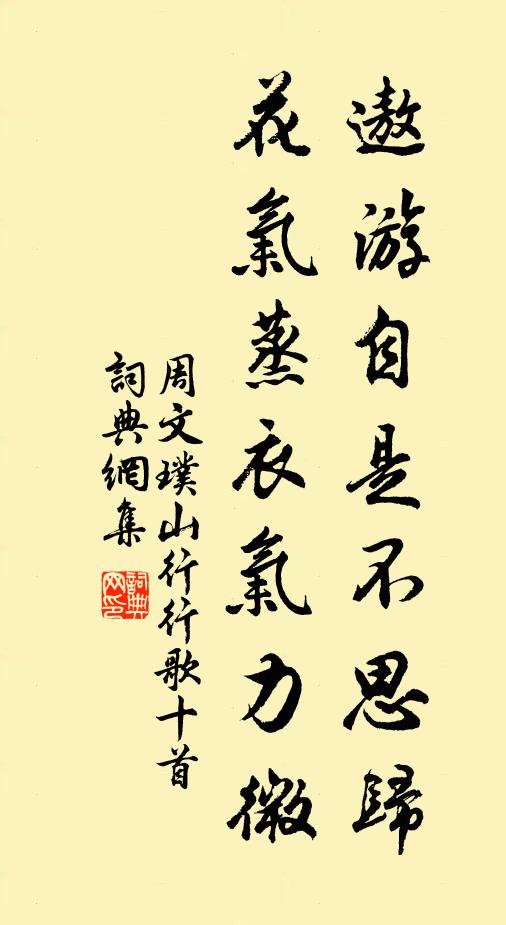 遨游自是不思歸
花氣蒸衣氣力微
周文璞山行行歌十首
詞典網集
詞典网印